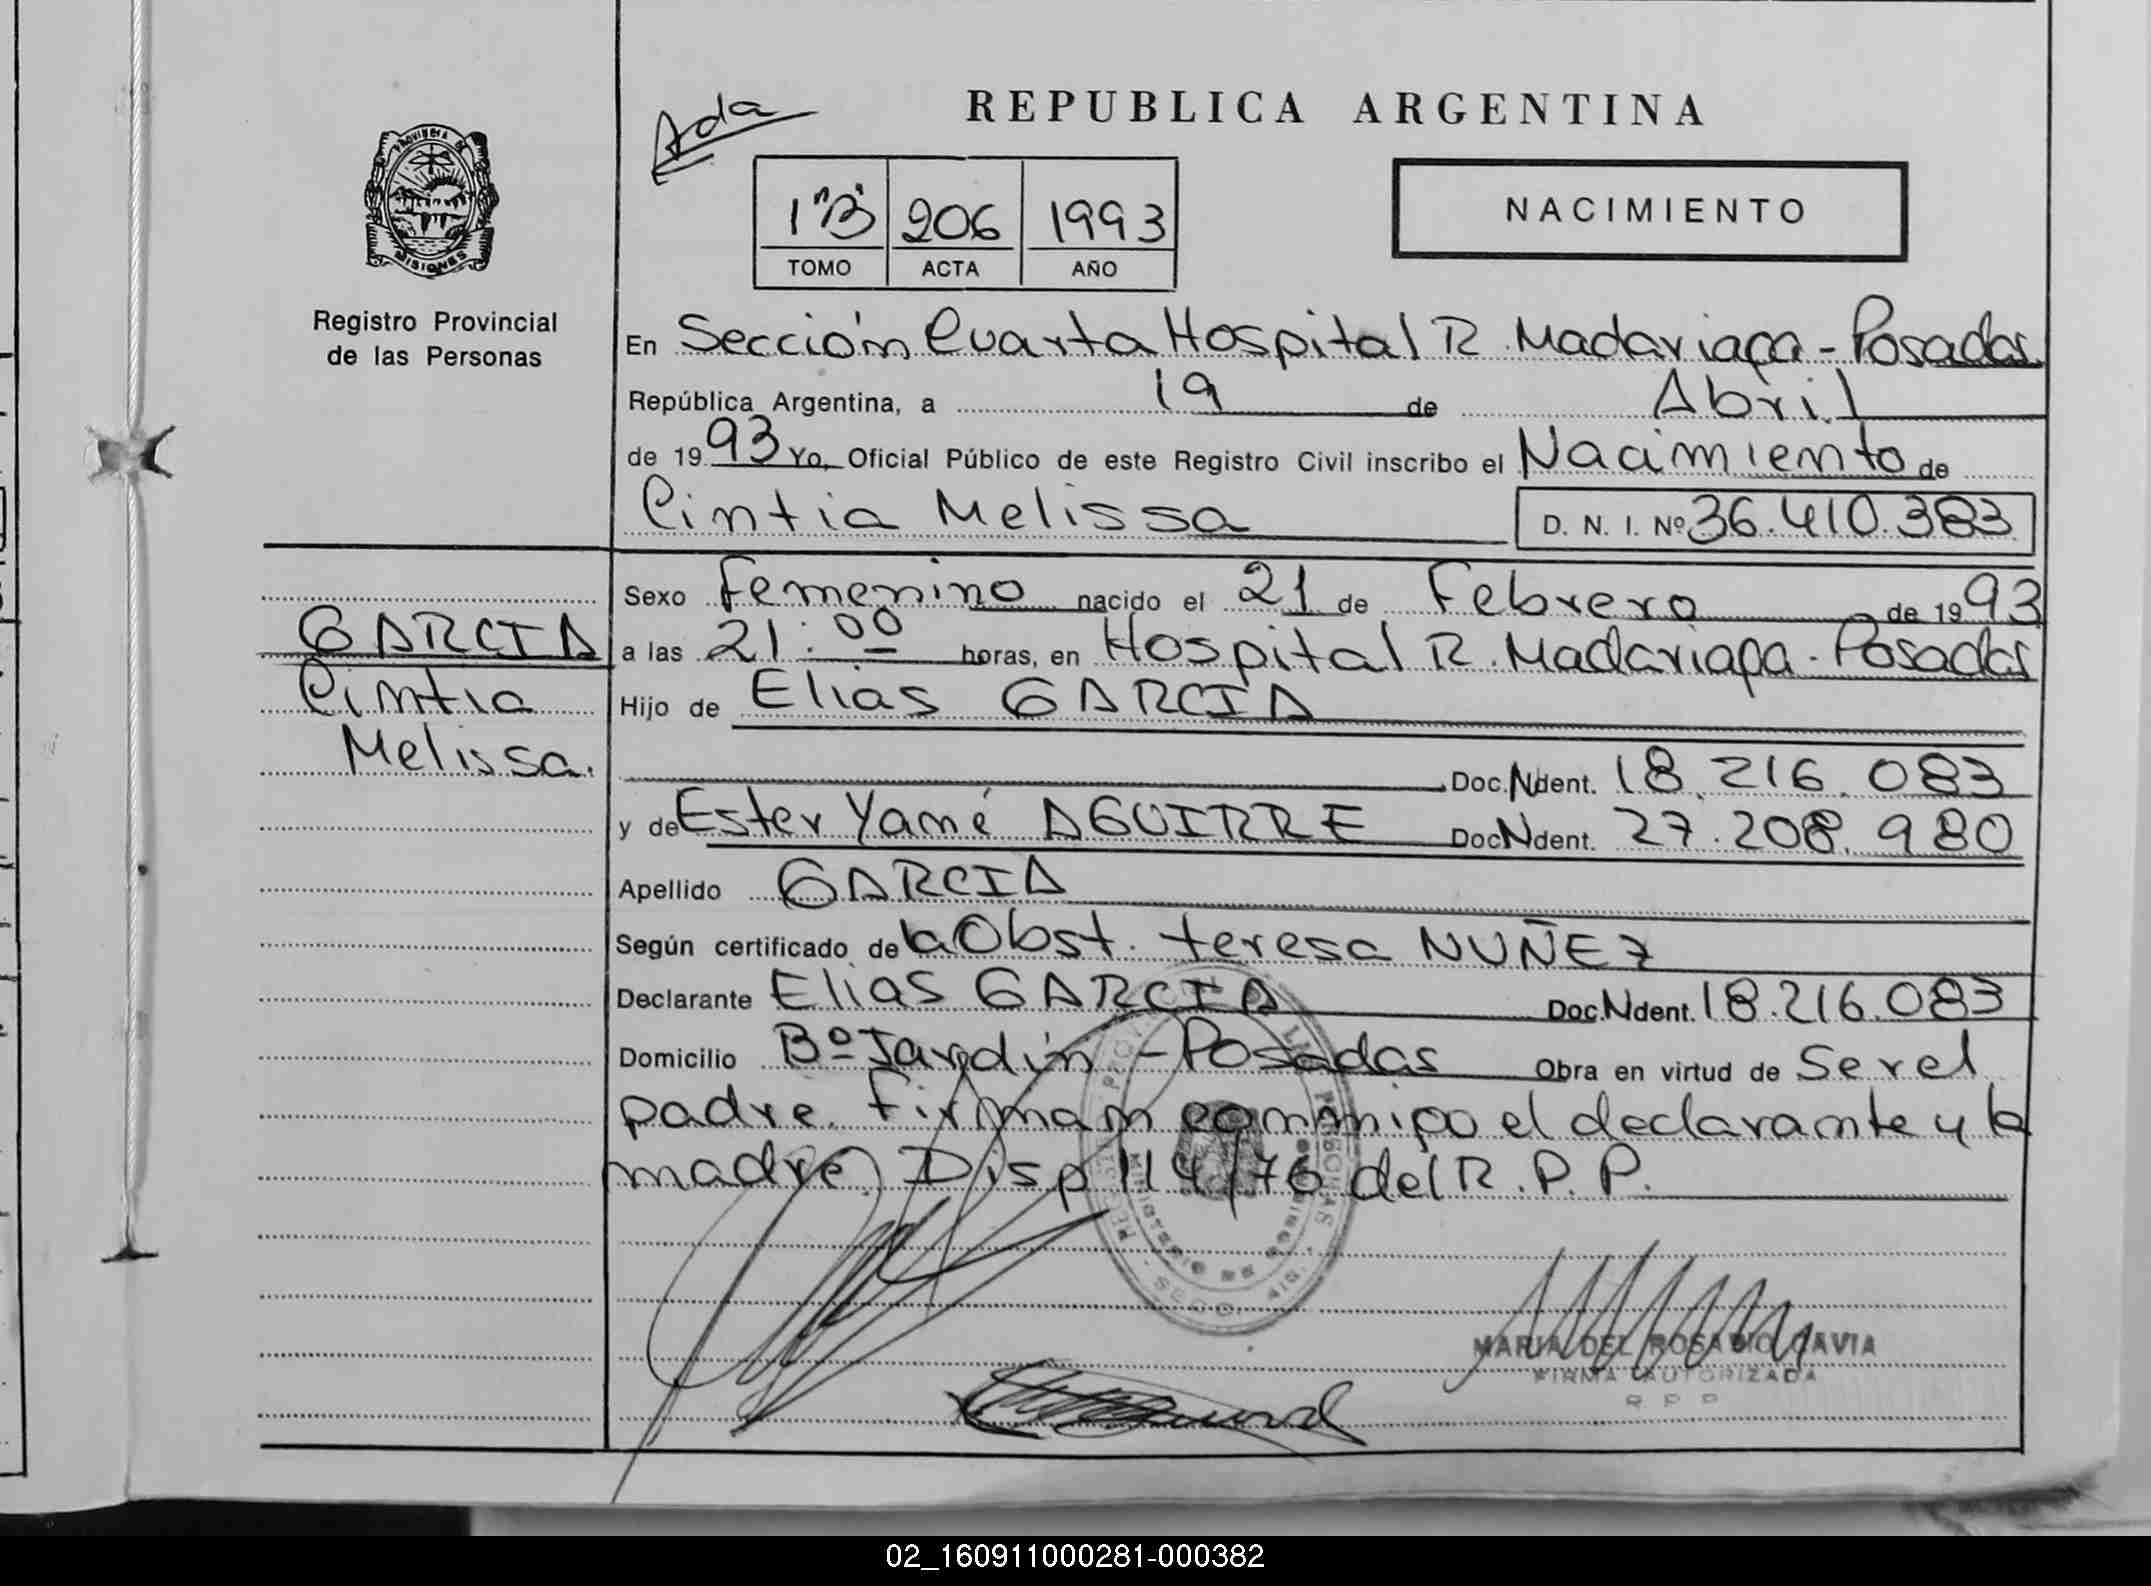 Ada
REPUBLICA ARGENTINA
PROVINCIA DE
MISIONES
1"B" 206 1993
TOMO ACTA AÑO
NACIMIENTO
Registro Provincial
de las Personas
En Sección Cuarta Hospital R. Madariaga - Posadas
República Argentina, a 19 de Abril
de 1993 Yo, Oficial Público de este Registro Civil inscribo el Nacimiento de
Cintia Melissa D. N. I. Nº 36.410.383
Sexo Femenino nacido el 21 de Febrero de 1993
a las 21:00 horas, en Hospital R. Madariaga - Posadas
Hijo de Elias GARCIA
Doc. N Ident. 18.216.083
y de Ester Yamé AGUIRRE Doc N Ident. 27.208.980
Apellido GARCIA
Según certificado de la Obst. teresa NUÑEZ
Declarante Elias GARCIA Doc. N Ident. 18.216.083
Domicilio Bº Jardín - Posadas Obra en virtud de Ser el
padre. Firman conmigo el declarante y la
madre. Disp 114/76 del R.P.P.
GARCIA
Cintia
Melissa.
MARIA DEL ROSARIO GAVIA
FIRMA AUTORIZADA
R P P
02_160911000281-000382